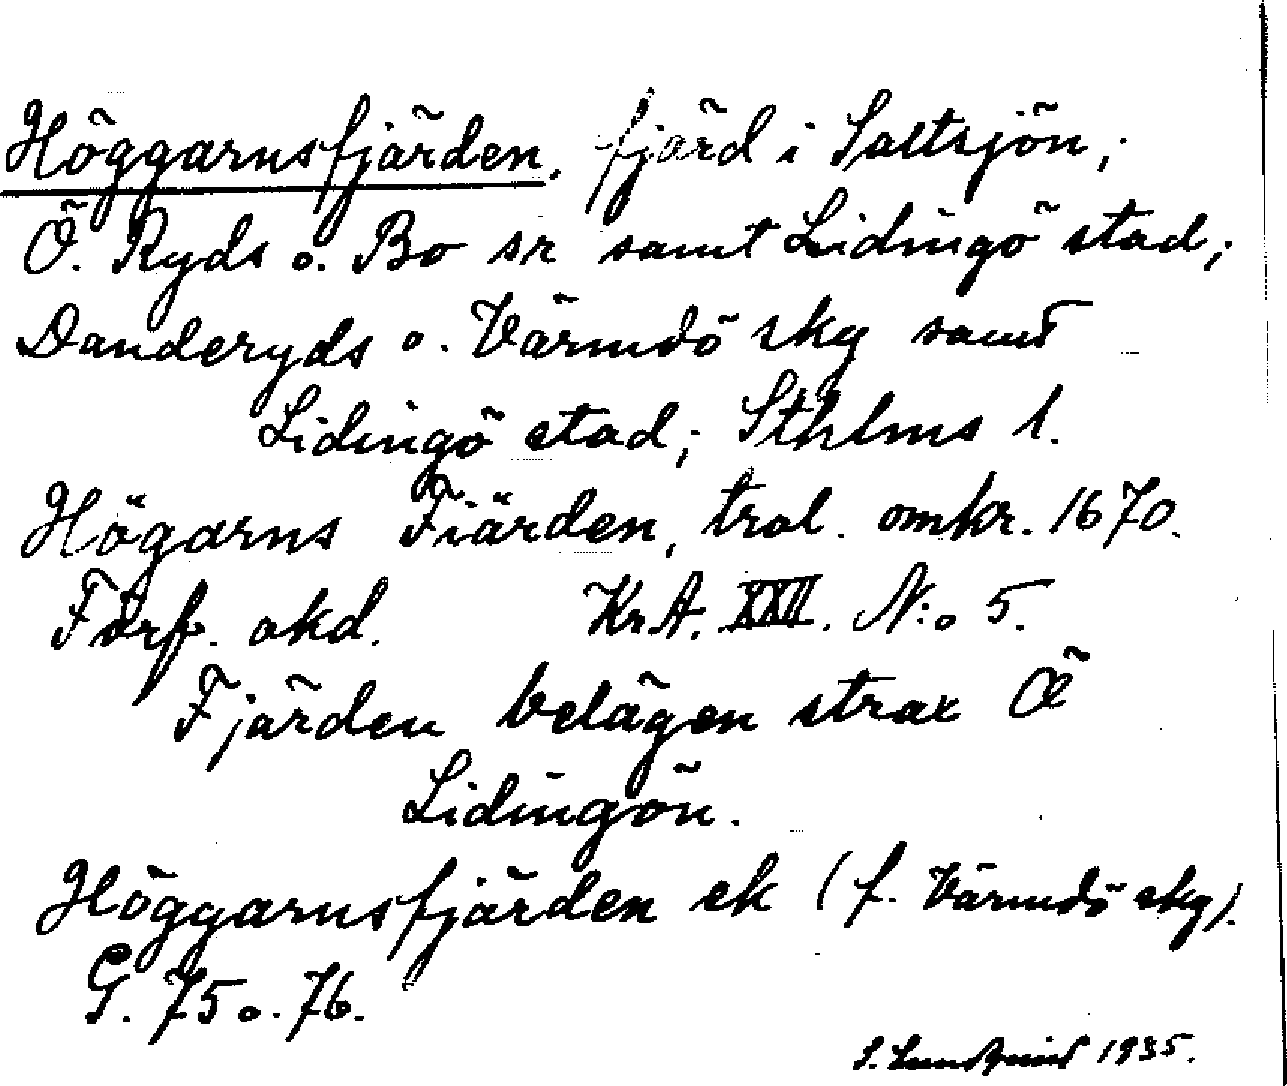 Höggarnsfjärden, fjärd i Saltsjön;
Ö. Ryds o. Bo sr samt Lidingö stad;
Danderyds o. Värmdö skg samt
Lidingö stad; Sthlms l.
Högarns Fiärden, trol. omkr. 1670.
Förf. okd. KrA. XXII. N:o 5.
Fjärden belägen strax Ö
Lidingön.
Höggarnsfjärden ek (f. Värmdö skg).
G. 75 o. 76.
S. Lundqvist 1935.